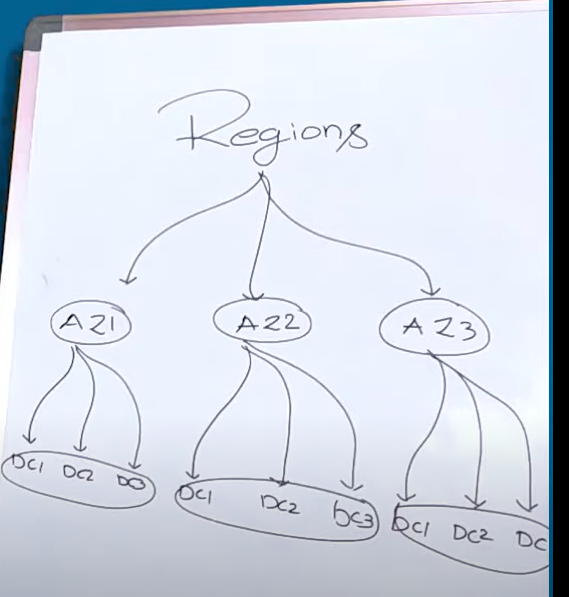 Regions
AZ1 AZ2 AZ3
DC1 DC2 DC3 DC1 DC2 DC3 DC1 DC2 DC